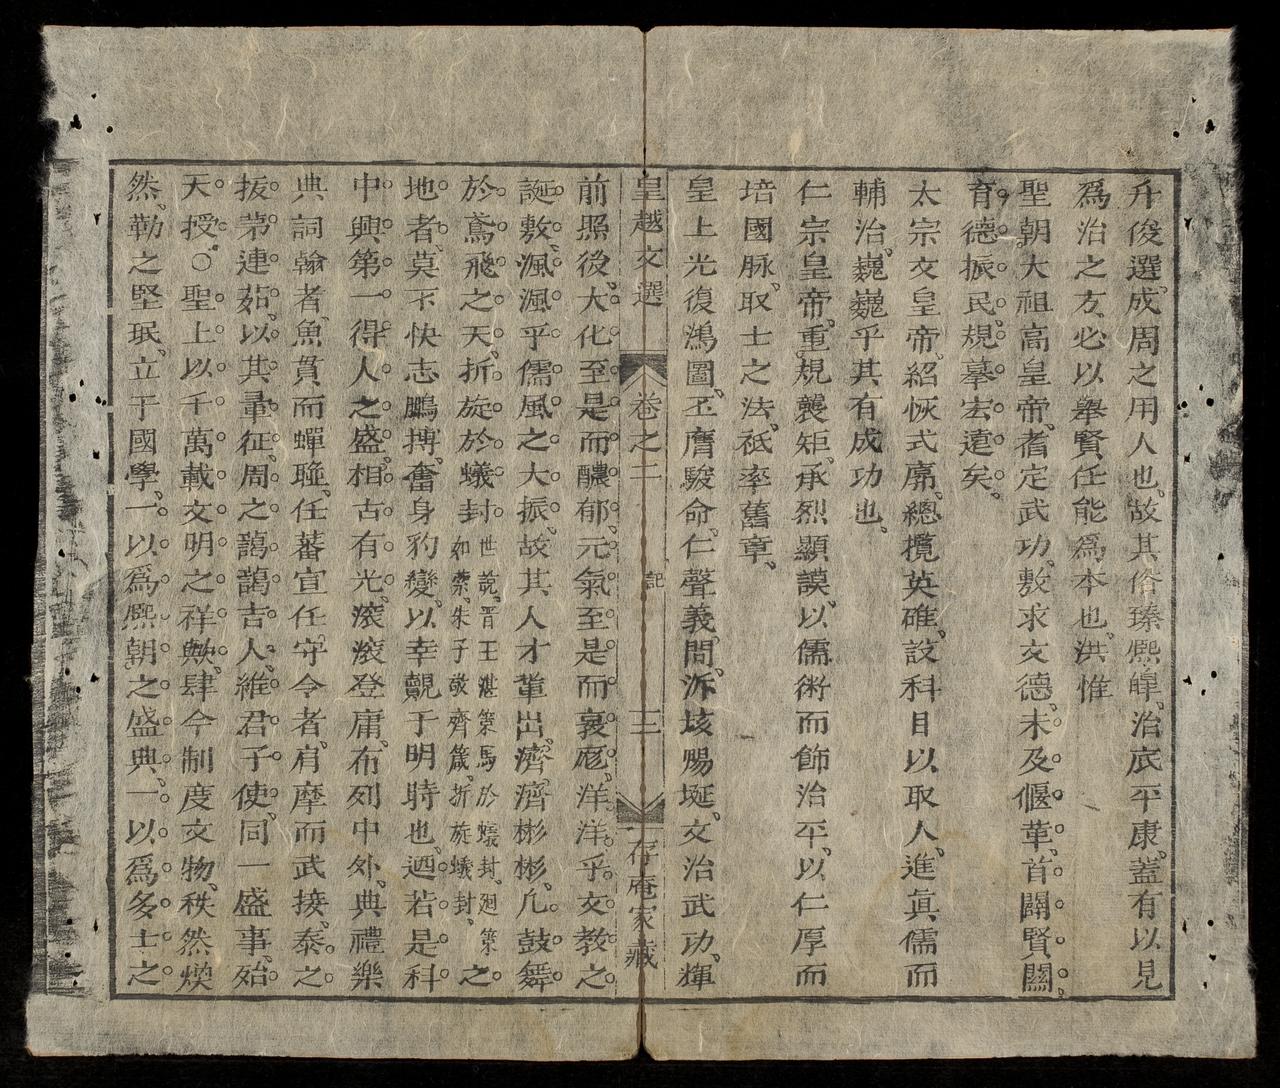 升俊選、成周之用人也、故其俗臻熙皥、治底平康、蓋有以見
爲治之方、必以舉賢任能爲本也、洪惟
聖朝大祖高皇帝、耆定武功、敷求文德、未及偃革、首闢賢關、
育德振民、規摹宏遠矣、
太宗文皇帝、紹恢式廓、總攬英雄、設科目以取人、進眞儒而
輔治、巍巍乎其有成功也、
仁宗皇帝、重規襲矩、承烈顯謨、以儒術而飾治平、以仁厚而
培國脉、取士之法、祗率舊章、
皇上光復鴻圖、丕膺駿命、仁聲義問、泝垓賜埏、文治武功、輝
皇越文選 卷之二 記 三 存庵家藏
前照後、大化至是而醲郁、元氣至是而裒厖、洋洋乎文教之
誕敷、渢渢乎儒風之大振、故其人才輩出、濟濟彬彬、凢鼓舞
於鳶飛之天、折旋於蟻封世說、晋王湛策馬於蟻封、廻策如縈、朱子敬齊箴、折旋蟻封、之
地者、莫不快志鵬摶、奮身豹變、以幸覩于明時也、廼若是科
中興第一、得人之盛、相古有光、滚滚登庸、布列中外、典禮樂
典詞翰者、魚貫而蟬聮、任蕃宣任守令者、肩摩而武接、泰之
拔茅連茹、以其彙征、周之藹藹吉人、維君子使、同一盛事、殆
天授。○聖上以千萬載文明之祥歟、肆今制度文物、秩然煥
然、勒之堅珉、立于國學、一以爲熙朝之盛典、一以爲多士之